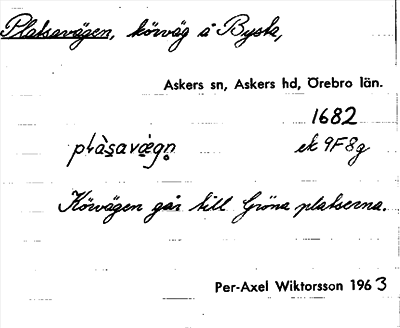 Platsavägen, körväg å Bysta,
Askers sn, Askers hd, Örebro län.
1682
plàsavægn̥ ek 9F8g
Körvägen går till Gröna platserna.
Per-Axel Wiktorsson 1963